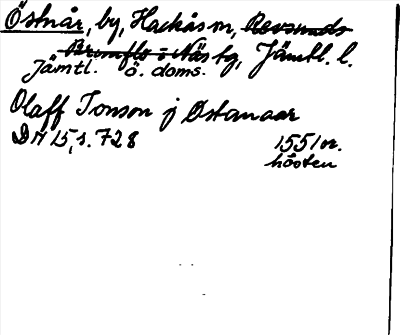 Östnår, by, Hackås sn, Revsunds
Brunflo o Näs tg, Jämtl. l.
Jämtl. ö. doms.
Olaff Jonson j Østanaar
DN 15, s. 728 1551 vr.
hösten